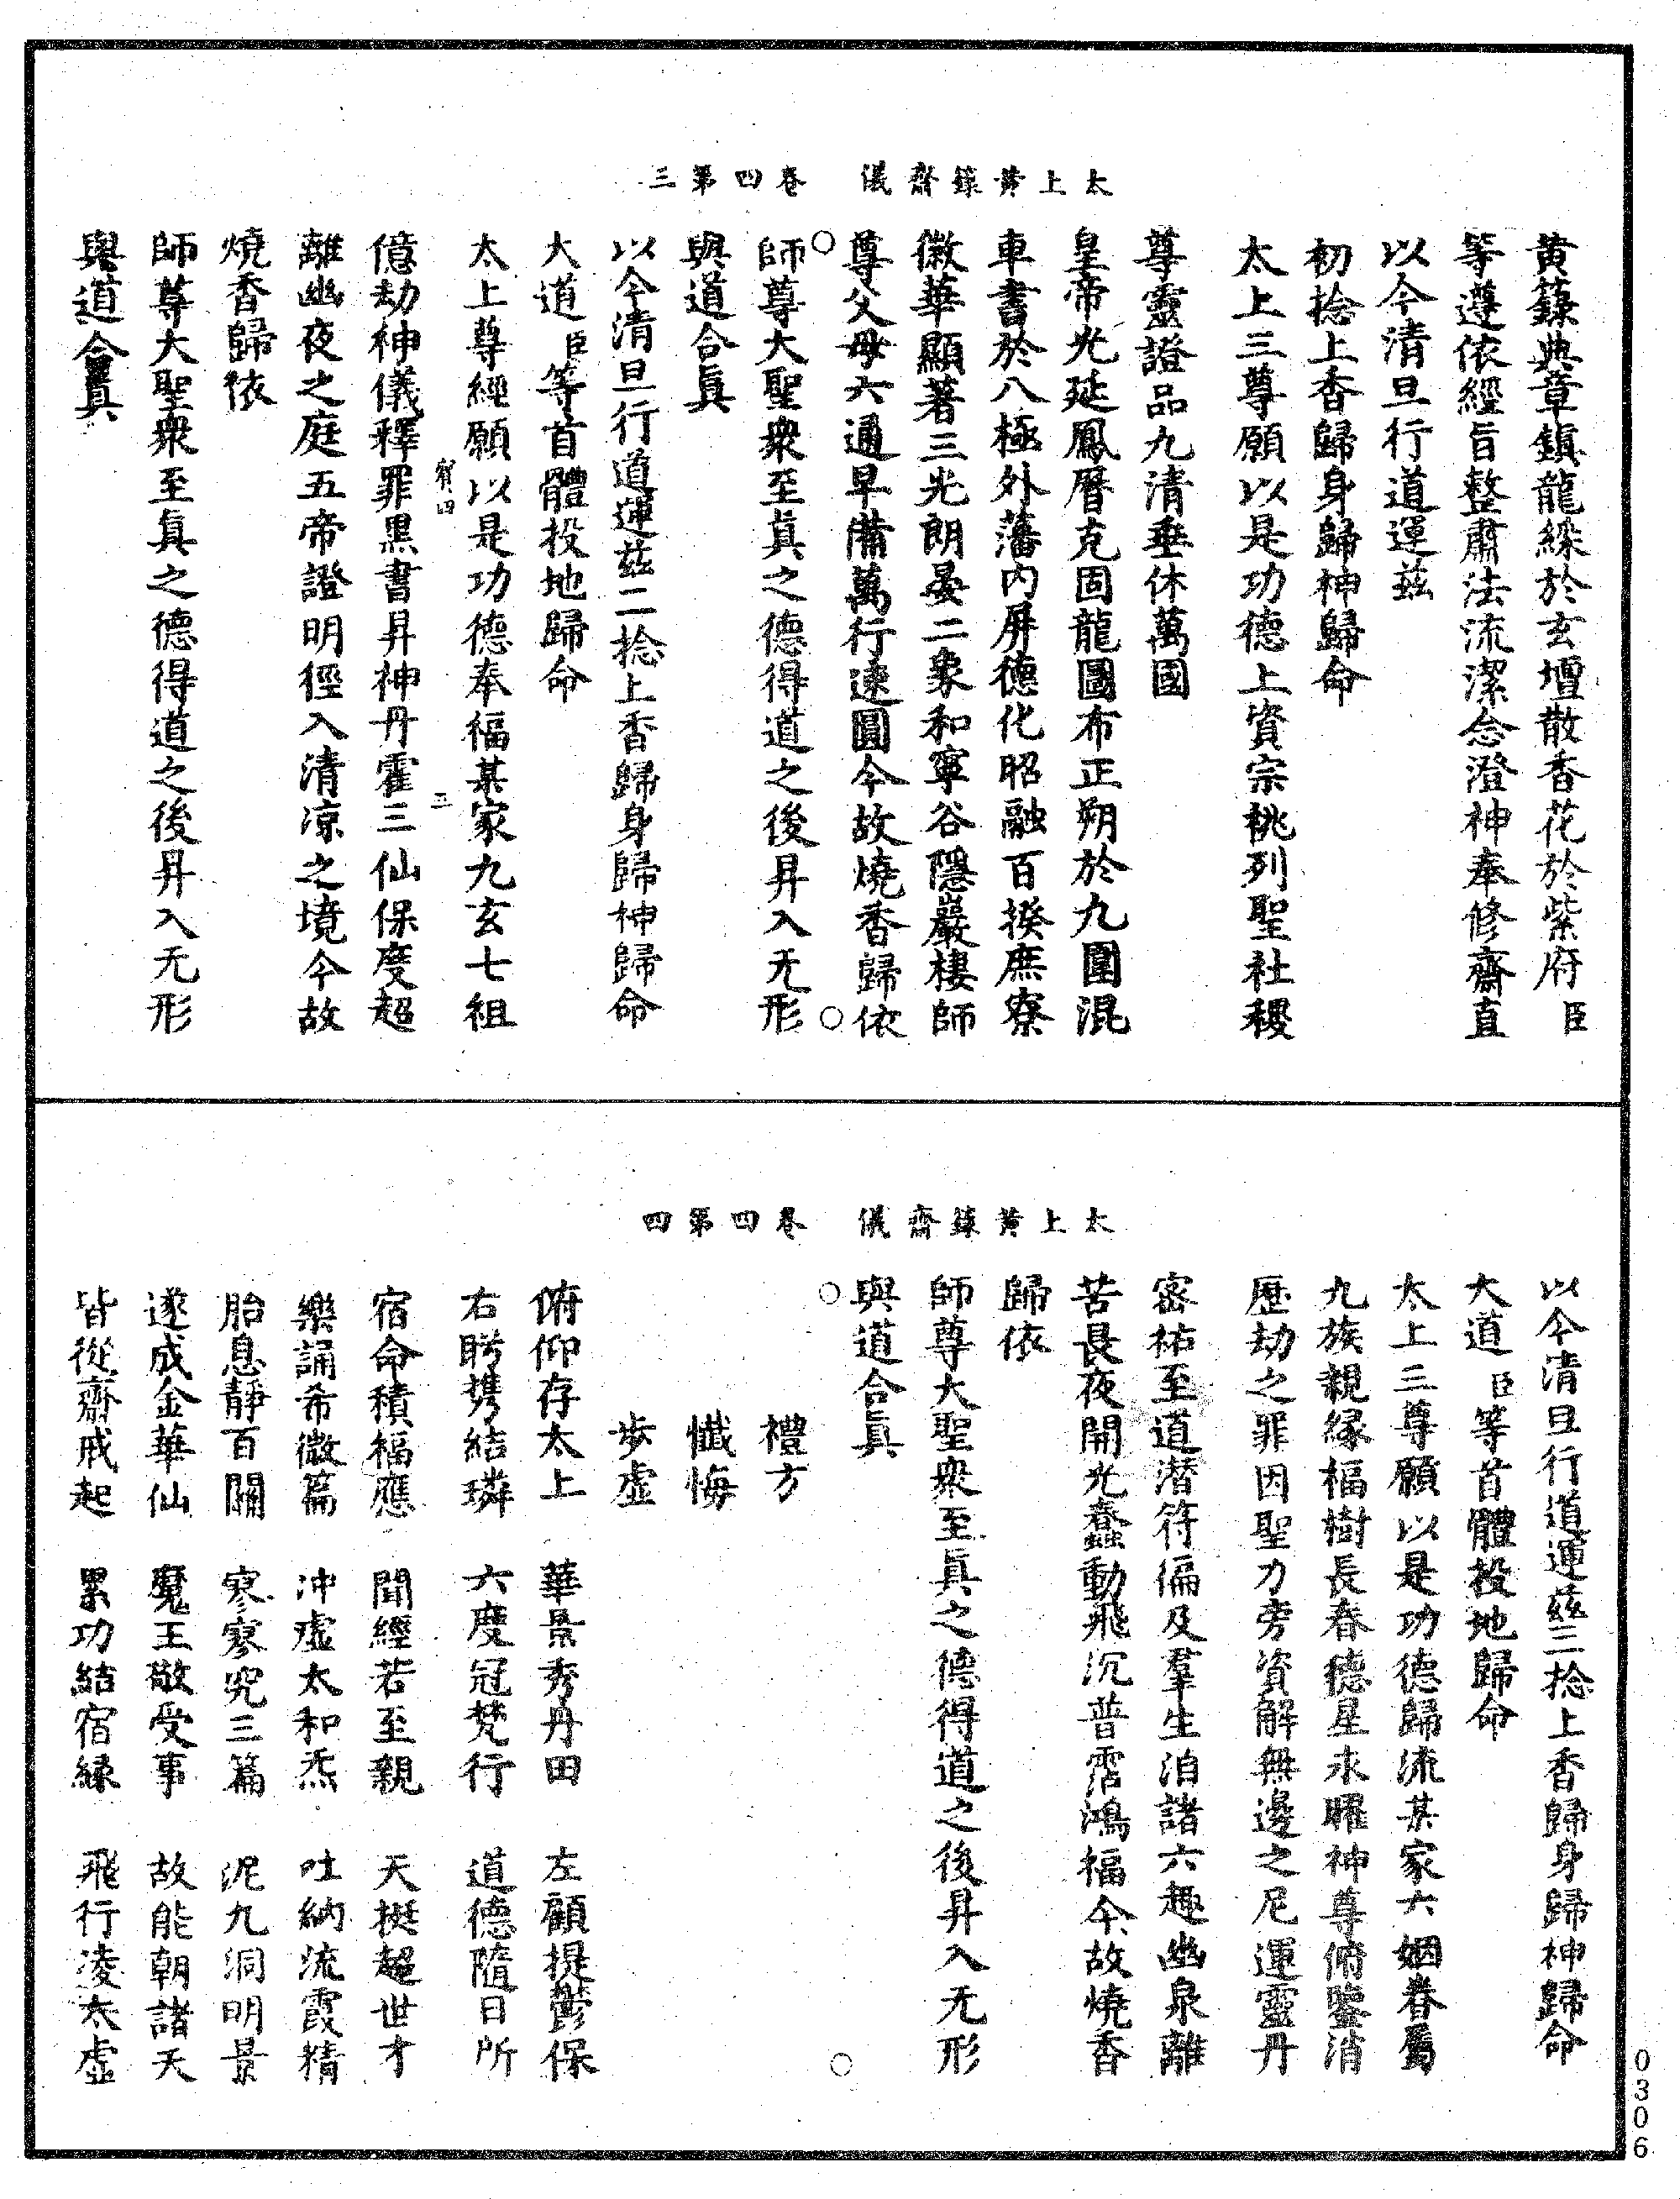 太上黃籙齋儀　卷四第三
黃籙典章鎮龍綵於玄壇散香花於紫府臣
等遵依經旨整肅法流潔念澄神奉修齋直
以今清旦行道運茲
初捻上香歸身歸神歸命
太上三尊願以是功德上資宗祧列聖社稷
尊靈證品九清垂休萬國
皇帝光延鳳曆克固龍圖布正朔於九圍混
車書於八極外藩內屏德化昭融百揆庶寮
徽華顯著三光朗晏二象和寧谷隱巖棲師
尊父母六通早備萬行速圓今故燒香歸依
師尊大聖衆至眞之德得道之後昇入无形
與道合眞
以今清旦行道運茲二捻上香歸身歸神歸命
大道臣等首體投地歸命
太上尊經願以是功德奉福某家九玄七祖
億劫神儀釋罪黑書昇神丹霍三仙保度超
離幽夜之庭五帝證明徑入清凉之境今故
燒香歸依
師尊大聖衆至眞之德得道之後昇入无形
與道合眞
太上黃籙齋儀　卷四第四
以今清旦行道運茲三捻上香歸身歸神歸命
大道臣等首體投地歸命
太上三尊願以是功德歸流某家六姻眷屬
九族親緣福樹長春德星永曜神尊俯鑒消
歷劫之罪因聖力旁資解無邊之厄運靈丹
密祐至道潛符徧及羣生洎諸六趣幽泉離
苦長夜開光蠢動飛沉普霑鴻福今故燒香
歸依
師尊大聖衆至眞之德得道之後昇入无形
與道合眞
禮方
懺悔
步虛
俯仰存太上　華景秀丹田　左顧提鬱保
右眄携結璘　六度冠梵行　道德隨日所
宿命積福應　聞經若至親　天挺超世才
樂誦希微篇　冲虛太和炁　吐納流霞精
胎息靜百關　寥寥究三篇　泥丸洞明景
遂成金華仙　魔王敬受事　故能朝諸天
皆從齋戒起　累功結宿緣　飛行凌太虛
0306